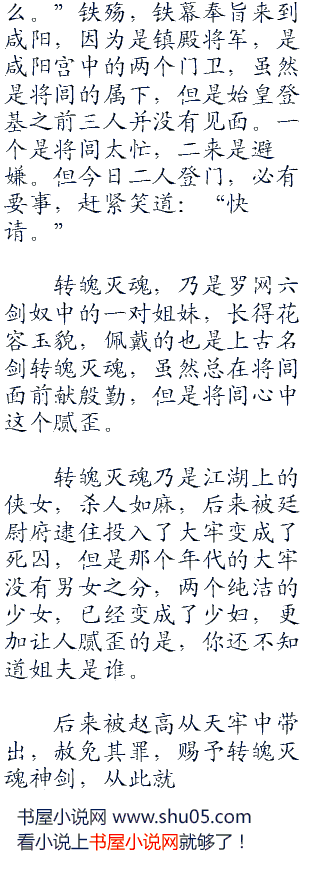 么。”铁殇，铁幕奉旨来到
咸阳，因为是镇殿将军，是
咸阳宫中的两个门卫，虽然
是将闾的属下，但是始皇登
基之前三人并没有见面。一
个是将闾太忙，二来是避
嫌。但今日二人登门，必有
要事，赶紧笑道：“快
请。”
转魄灭魂，乃是罗网六
剑奴中的一对姐妹，长得花
容玉貌，佩戴的也是上古名
剑转魄灭魂，虽然总在将闾
面前献殷勤，但是将闾心中
这个腻歪。
转魄灭魂乃是江湖上的
侠女，杀人如麻，后来被廷
尉府逮住投入了大牢变成了
死囚，但是那个年代的大牢
没有男女之分，两个纯洁的
少女，已经变成了少妇，更
加让人腻歪的是，你还不知
道姐夫是谁。
后来被赵高从天牢中带
出，赦免其罪，赐予转魄灭
魂神剑，从此就
书屋小说网 www.shu05.com
看小说上书屋小说网就够了！